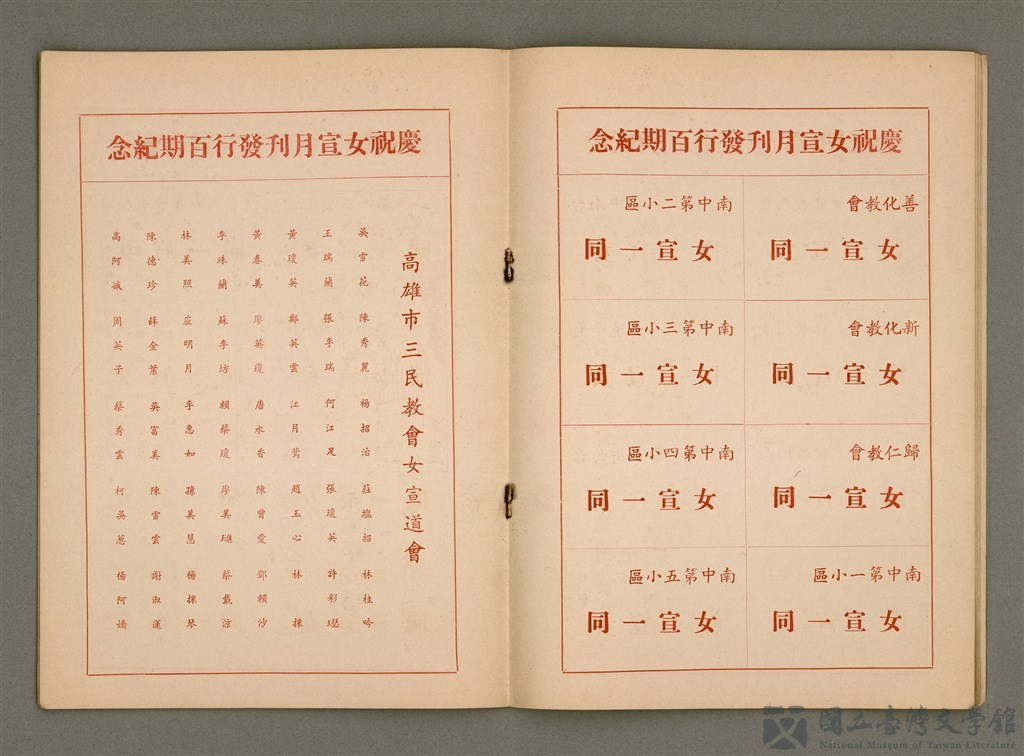 慶祝女宣月刊發行百期紀念
善化教會
女宣一同
新化教會
女宣一同
歸仁教會
女宣一同
南中第一小區
女宣一同
南中第二小區
女宣一同
南中第三小區
女宣一同
南中第四小區
女宣一同
南中第五小區
女宣一同
慶祝女宣月刊發行百期紀念
高雄市三民教會女宣道會
吳雪花 陳秀麗 楊招治 莊塩招 林桂吟
王瑞蘭 張李瑞 何江足 張瓊英 許彩
黃瓊英 鄭英雲 江月鶯 趙玉心 林 採
黃春美 廖英瓊 唐水香 陳曾愛 鄧賴沙
李珠蘭 蘇李坊 賴蔡瓊 廖美 蔡戴涼
林美照 盧明月 李惠如 孫美慧 楊採琴
陳德珍 薛金葉 吳富美 陳雪雲 謝淑蓮
高阿娥 周英子 蔡秀雲 柯吳葱 楊阿嬌
國立臺灣文學館
National Museum of Taiwan Literature